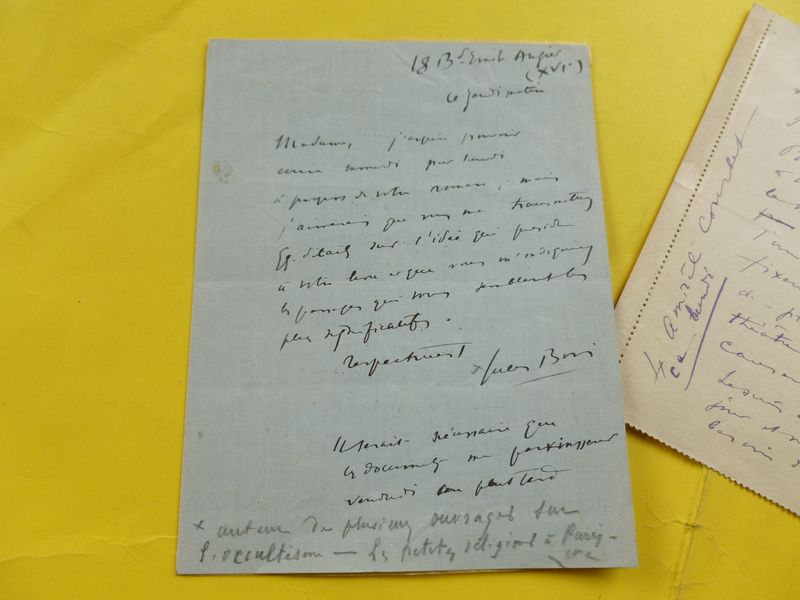 18 Bd Emile Augier
(XVIe)
ce jeudi matin
Madame, j'espère pouvoir
samedi par lundi
à propos de votre roman ; mais
j'aimerais que vous me transmettiez
qq. détails sur l'idée qui préside
à votre livre et que vous m'indiquiez
les passages qui vous semblent les
plus significatifs.
Respectueust
x Jules Bois
Il serait nécessaire que
ces documents me parvinssent
vendredi au plus tard
x auteur de plusieurs ouvrages sur
l'occultisme — Les petites religions à Paris —
etc
4 Amiral Courbet
ce lundi